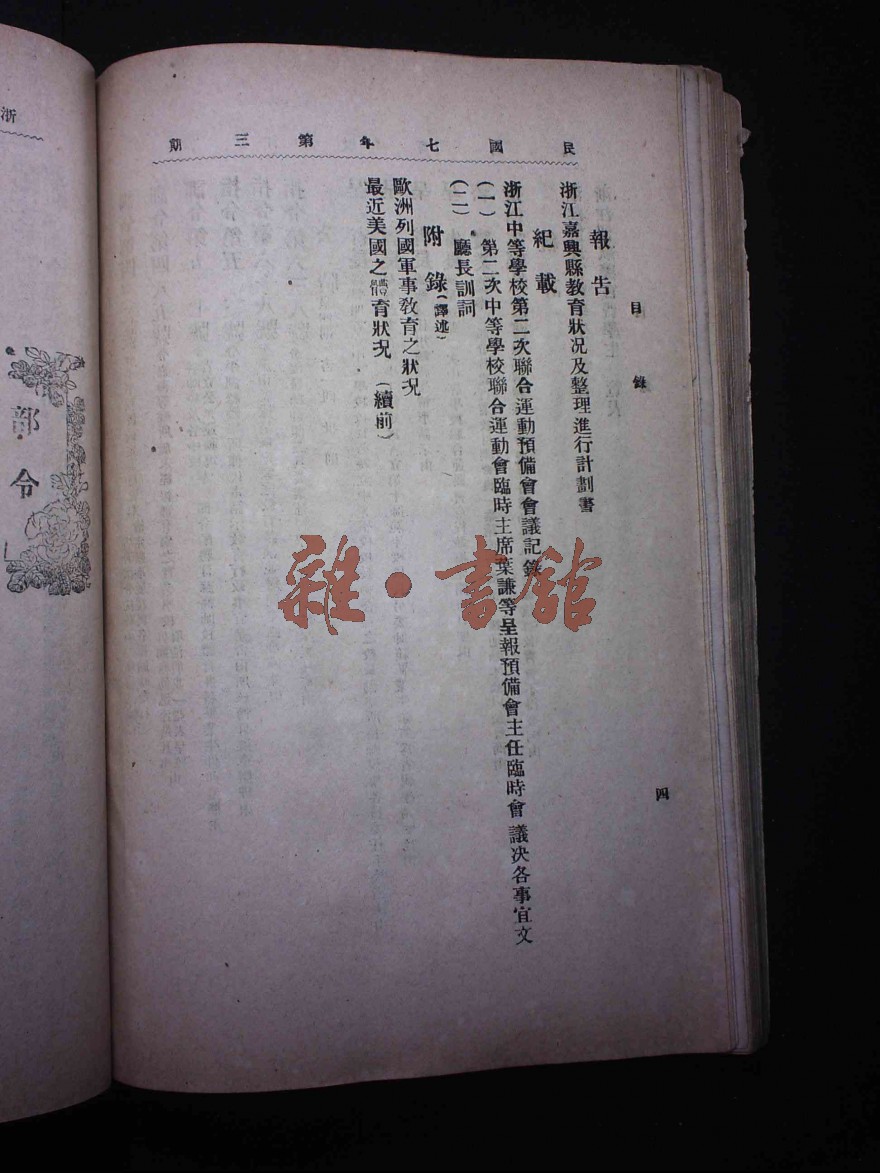 民國七年第三期
目錄
四
報告
浙江嘉興縣教育狀况及整理進行計劃書
紀載
浙江中等學校第二次聯合運動預備會會議記錄
(一)第二次中等學校聯合運動會臨時主席葉謙等呈報預備會主任臨時會議决各事宜文
(二)廳長訓詞
附錄(譯述)
歐洲列國軍事敎育之狀况
最近美國之體育狀况(續前)
浙
部令
雜·書館